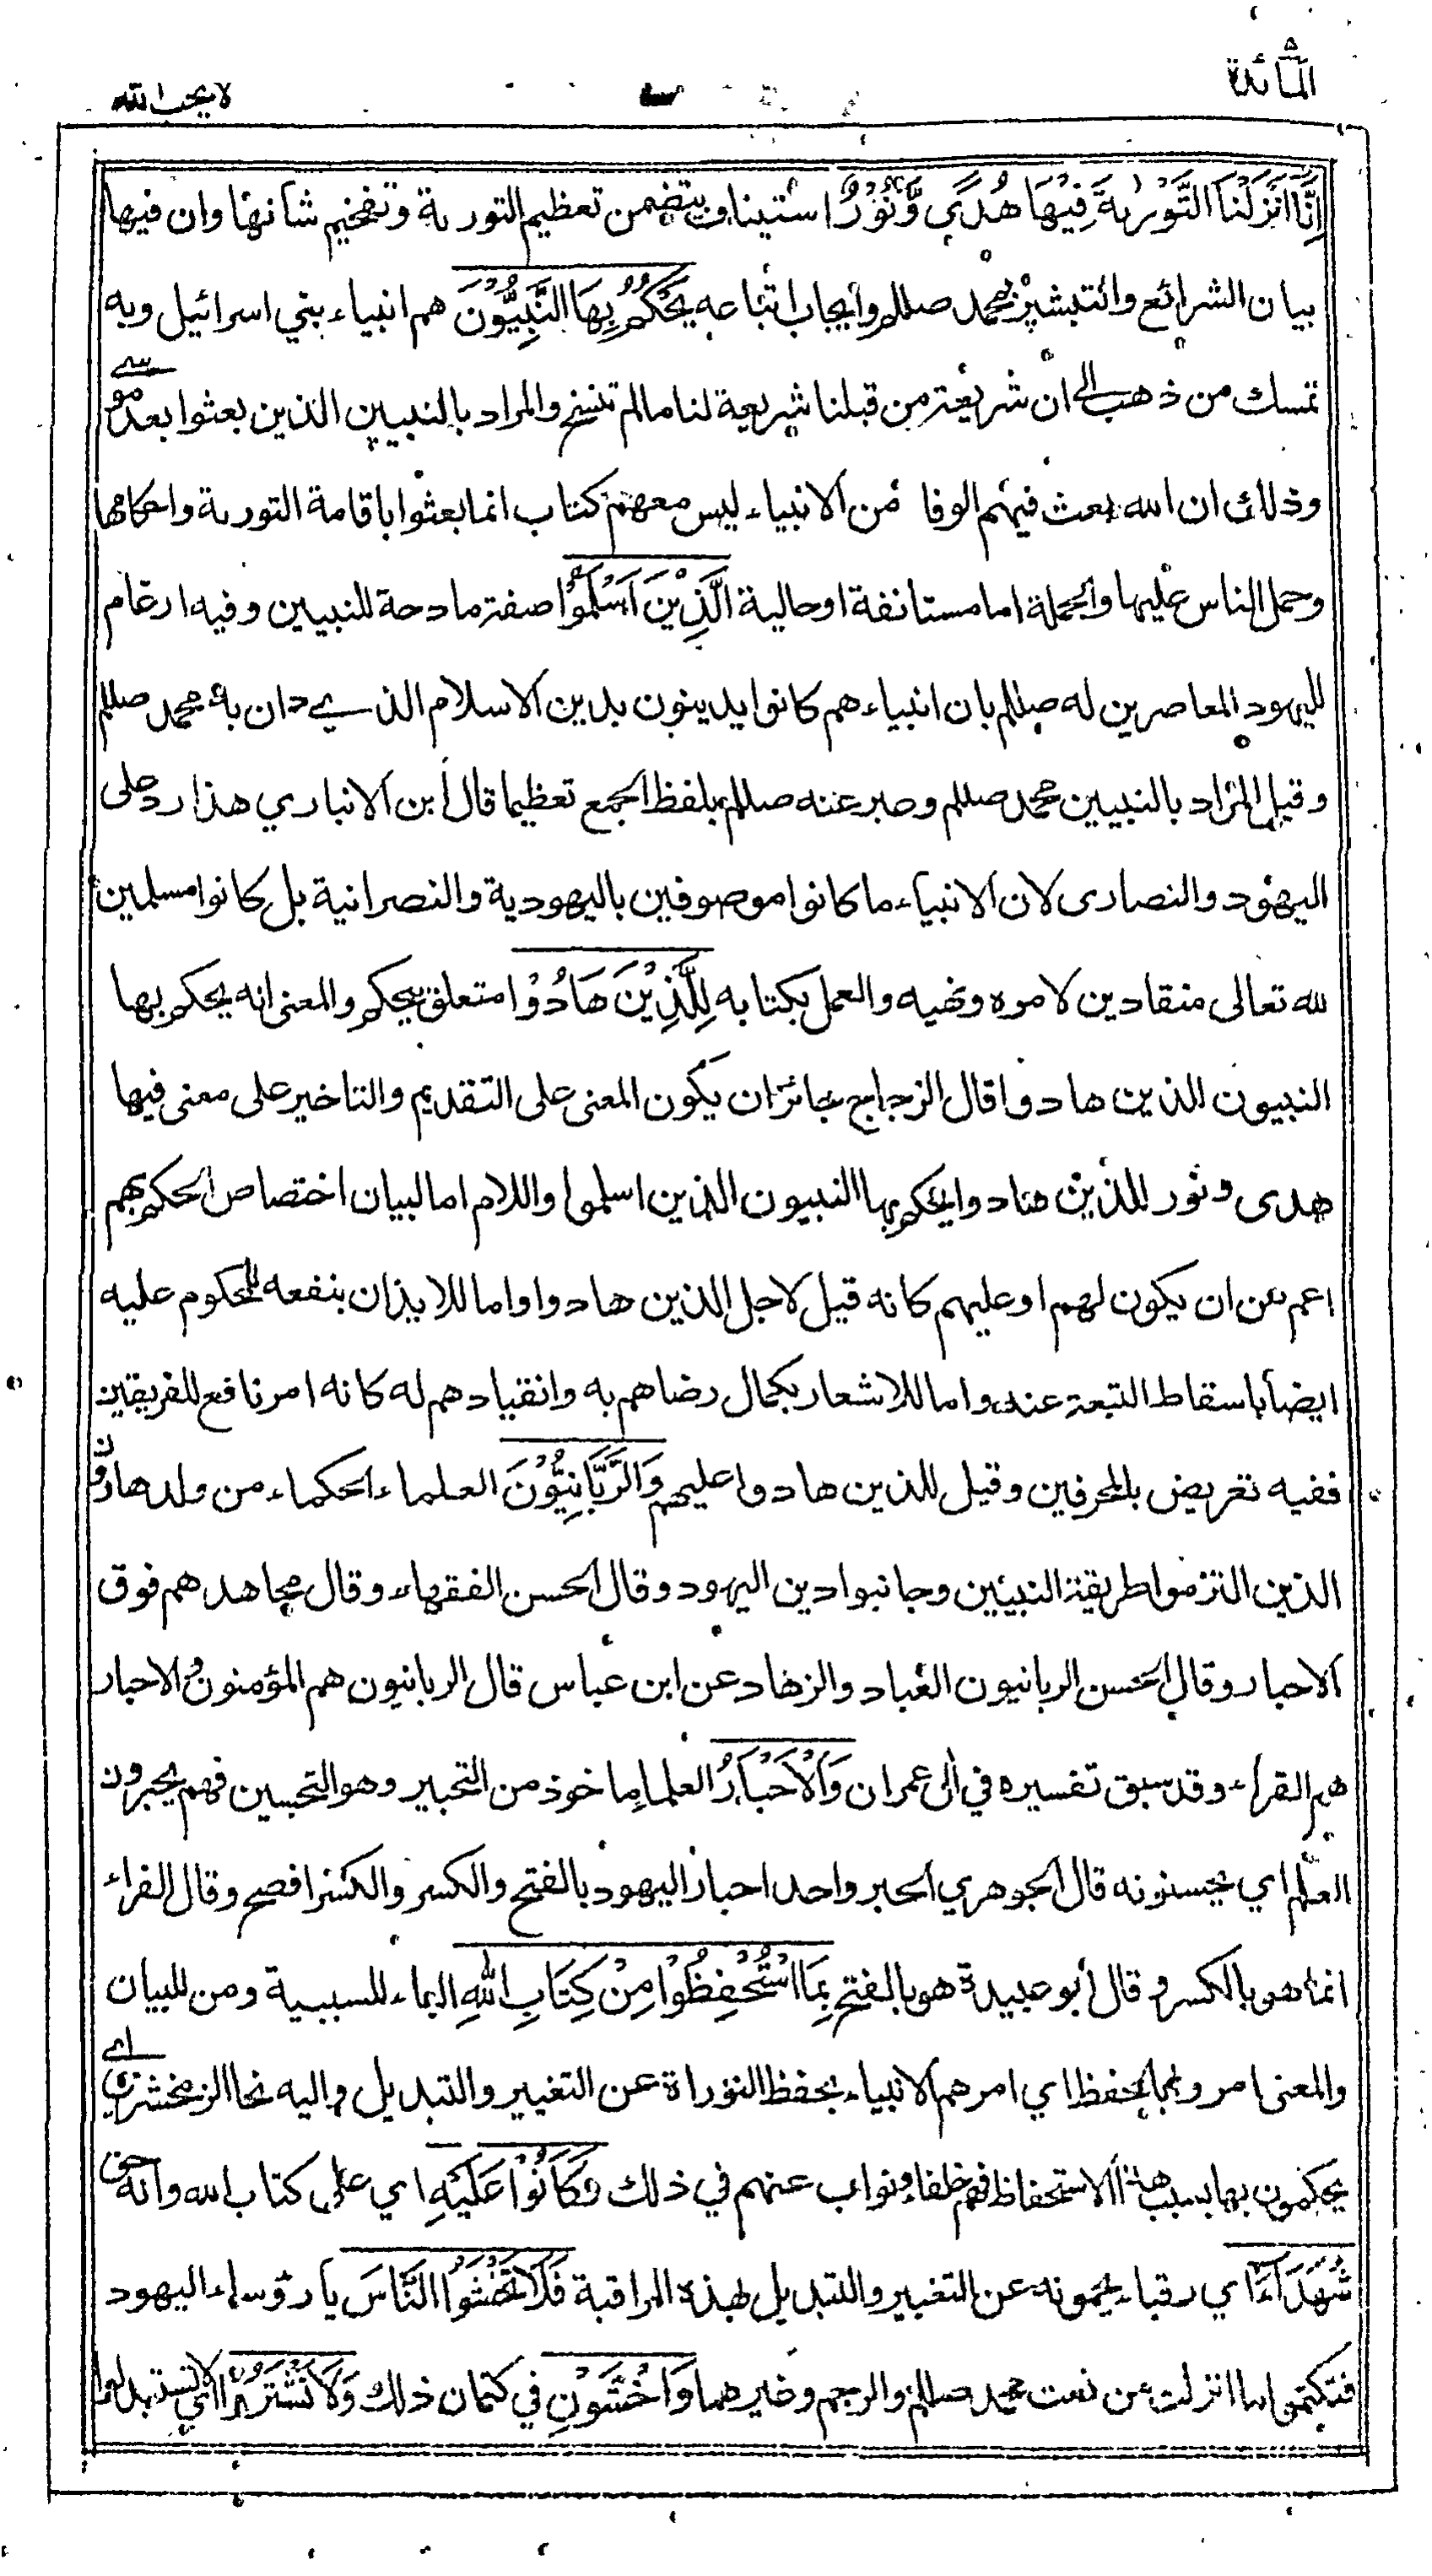 المائدة ٥
لا يحب الله
إِنَّا أَنْزَلْنَا التَّوْرٰىةَ فِيْهَا هُدًى وَّنُوْرٌ استيناف يتضمن تعظيم التورىة وتفخيم شانها وان فيها
بيان الشرائع والتبشير بمحمد صللم وايجاب اتباعه يَحْكُمُ بِهَا النَّبِيُّوْنَ هم انبياء بني اسرائيل وبه
تمسك من ذهب الى ان شريعة من قبلنا شريعة لنا ما لم تنسخ والمراد بالنبيين الذين بعثوا بعد موسے
وذلك ان الله بعث فيهم الوفا من الانبياء ليس معهم كتاب انما بعثوا باقامة التورىة واحكامها
وحمل الناس عليها والجملة اما مستانفة او حالية الَّذِيْنَ اَسْلَمُوْا صفة مادحة للنبيين وفيه ارغام
لليهود المعاصرين له صللم بان انبياءهم كانوا يدينون بدين الاسلام الذے دان به محمد صللم
وقيل المراد بالنبيين محمد صللم وعبر عنه صللم بلفظ الجمع تعظيما قال أبن الانباري هذا رد على
اليهود والنصارى لان الانبياء ما كانوا موصوفين باليهودية والنصرانية بل كانوا مسلمين
لله تعالى منقادين لامره ونهيه والعمل بكتابه لِلَّذِيْنَ هَادُوْا متعلق بيحكم والمعنى انه يحكم بها
النبيون للذين هادوا قال الزجاج جائز ان يكون المعنى على التقديم والتاخير على معنى فيها
هدى ونور للذين هادوا يحكم بها النبيون الذين اسلموا واللام اما لبيان اختصاص الحكم بهم
اعم من ان يكون لهم او عليهم كانه قيل لاجل الذين هادوا واما للايذان بنفعه للمحكوم عليه
ايضا باسقاط التبعة عنه واما للاشعار بكمال رضاهم به وانقيادهم له كانه امر نافع للفريقين
ففيه تعريض بالمحرفين وقيل للذين هادوا عليهم وَالرَّبَّانِيُّوْنَ العلماء الحكماء من ولد هارون
الذين التزموا طريقة النبيئين وجانبوا دين اليهود وقال الحسن الفقهاء وقال مجاهد هم فوق
الاحبار وقال الحسن الربانيون العباد والزهاد عن ابن عباس قال الربانيون هم المؤمنون والاحبار
هم القراء وقد سبق تفسيره في اٰل عمران وَالْاَحْبَارُ العلماء ماخوذ من التحبير وهو التحسين فهم يحبرون
العلم اي يحسنونه قال الجوهري الحبر واحد احبار اليهود بالفتح والكسر والكسر افصح وقال الفراء
انما هو بالكسر وقال أبو عبيدة هو بالفتح بِمَا اسْتُحْفِظُوْا مِنْ كِتَابِ اللهِ الباء للسببية ومن للبيان
والمعنى امروا بالحفظ اي امرهم الانبياء بحفظ التوراة عن التغيير والتبديل واليه نحا الزمخشري اے
يحكمون بها بسبب هذا الاستحفاظ فهم خلفاء ونواب عنهم في ذلك وَكَانُوْا عَلَيْهِ اي على كتاب الله وانه حق
شُهَدَاءَ اي رقباء يحمونه عن التغيير والتبديل بهذه المراقبة فَلَا تَخْشَوُا النَّاسَ يا رؤساء اليهود
فتكتموا ما انزلت من نعت محمد صللم والرجم وغيرهما وَاخْشَوْنِ في كتمان ذلك وَلَا تَشْتَرُوْا اي لا تستبدلوا